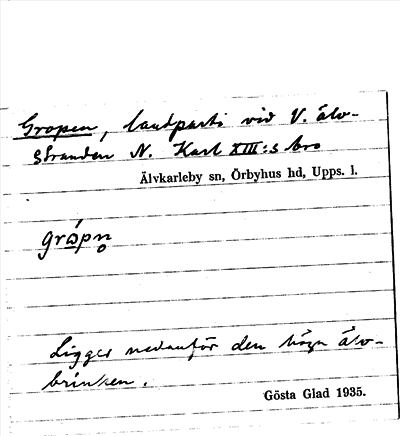 Gropen, landparti vid V. älv-
stranden N. Karl XIII:s bro
Älvkarleby sn, Örbyhus hd, Upps. l.
grópn̥
Ligger nedanför den höga älv-
brinken.
Gösta Glad 1935.